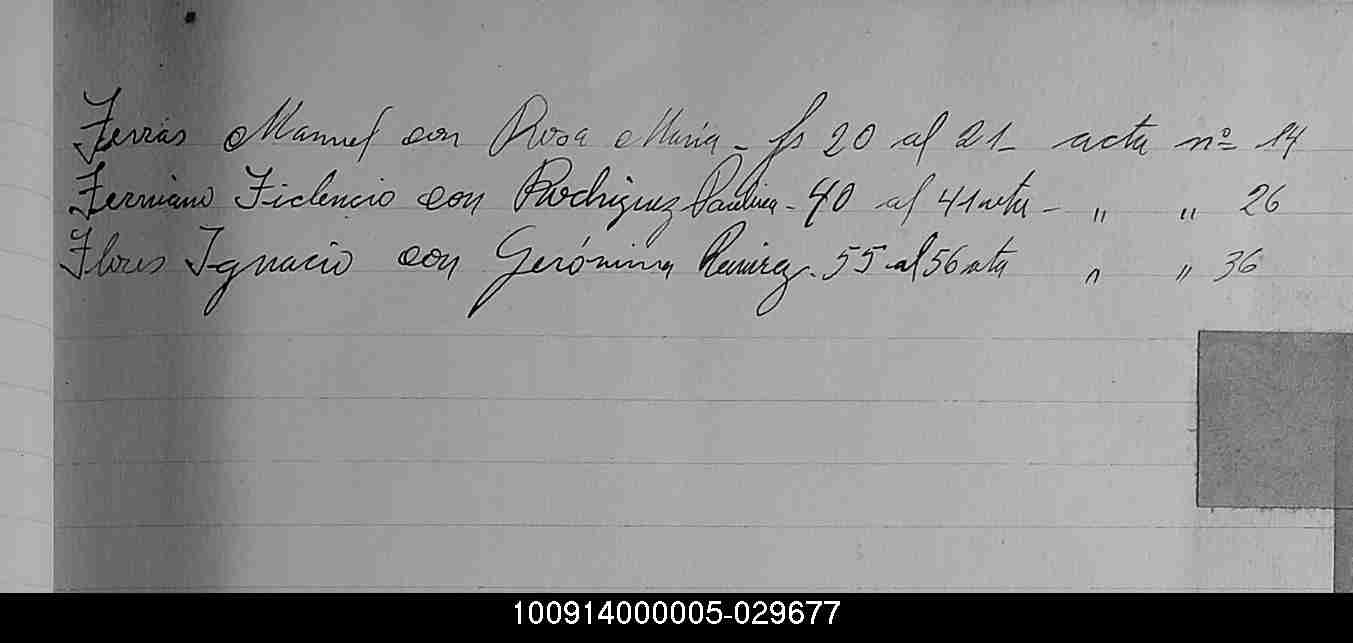 Ferrás Manuel con Rosa María - fs 20 al 21 - acta nº 14
Fidencio con Rodriguez Paulina - 40 al 41 vta - " " 26
Flores Ignacio con Gerónima Ramirez - 55 al 56 vta " " 36
100914000005-029677